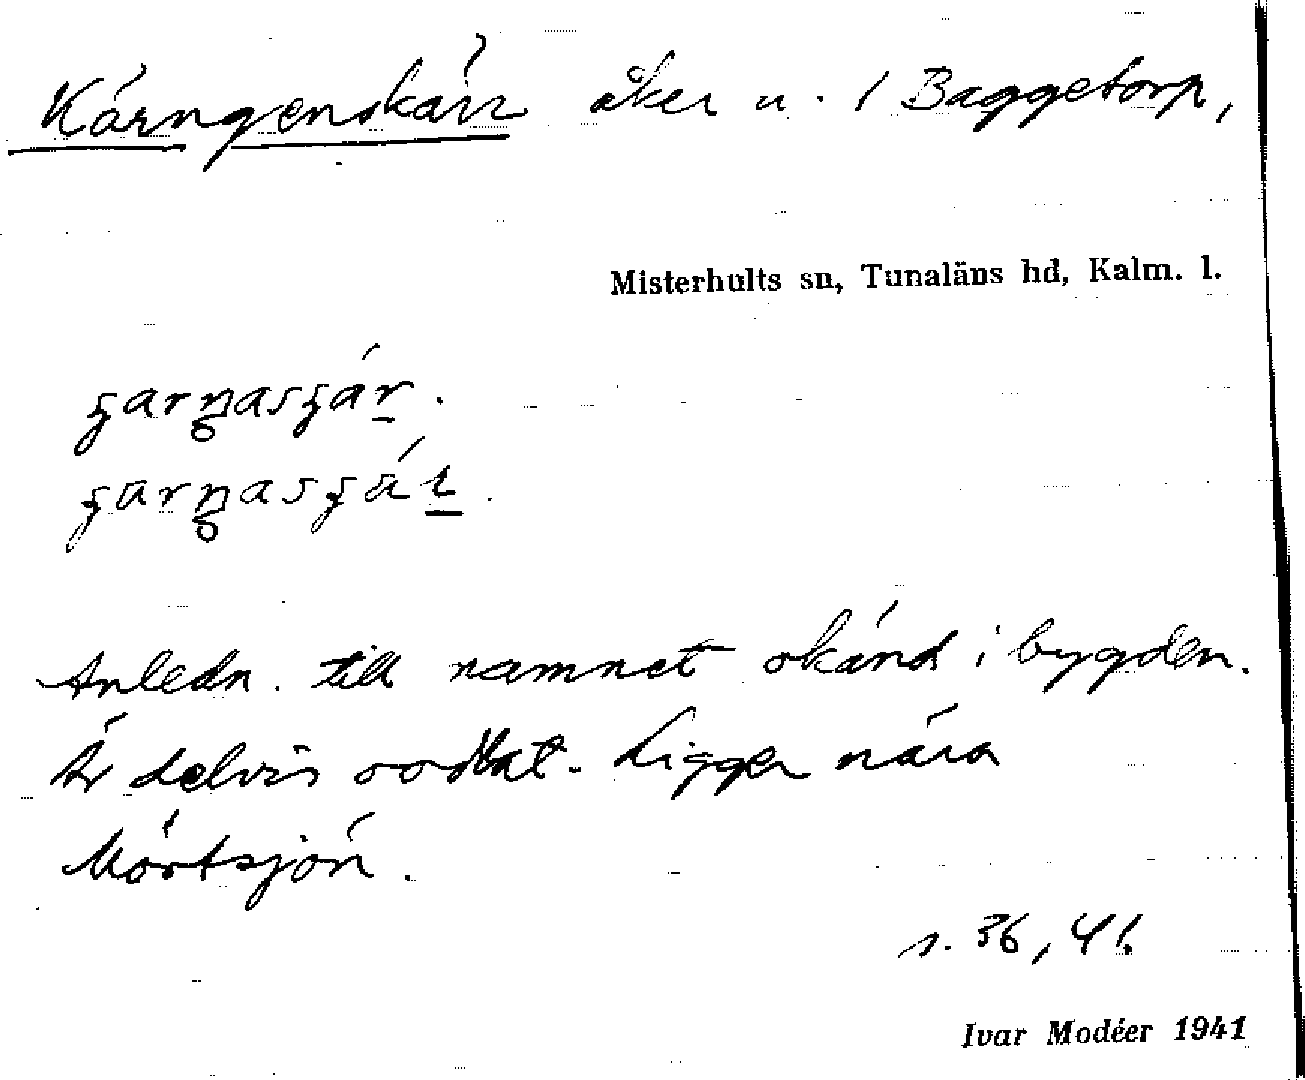 Kärngenskärr åker u. / Baggetorp,
Misterhults sn, Tunaläns hd, Kalm. l.
Anledn. till namnet okänd i bygden.
Är delvis oodlat. Ligger nära
Mörtsjön.
s. 36, 41.
Ivar Modéer 1941